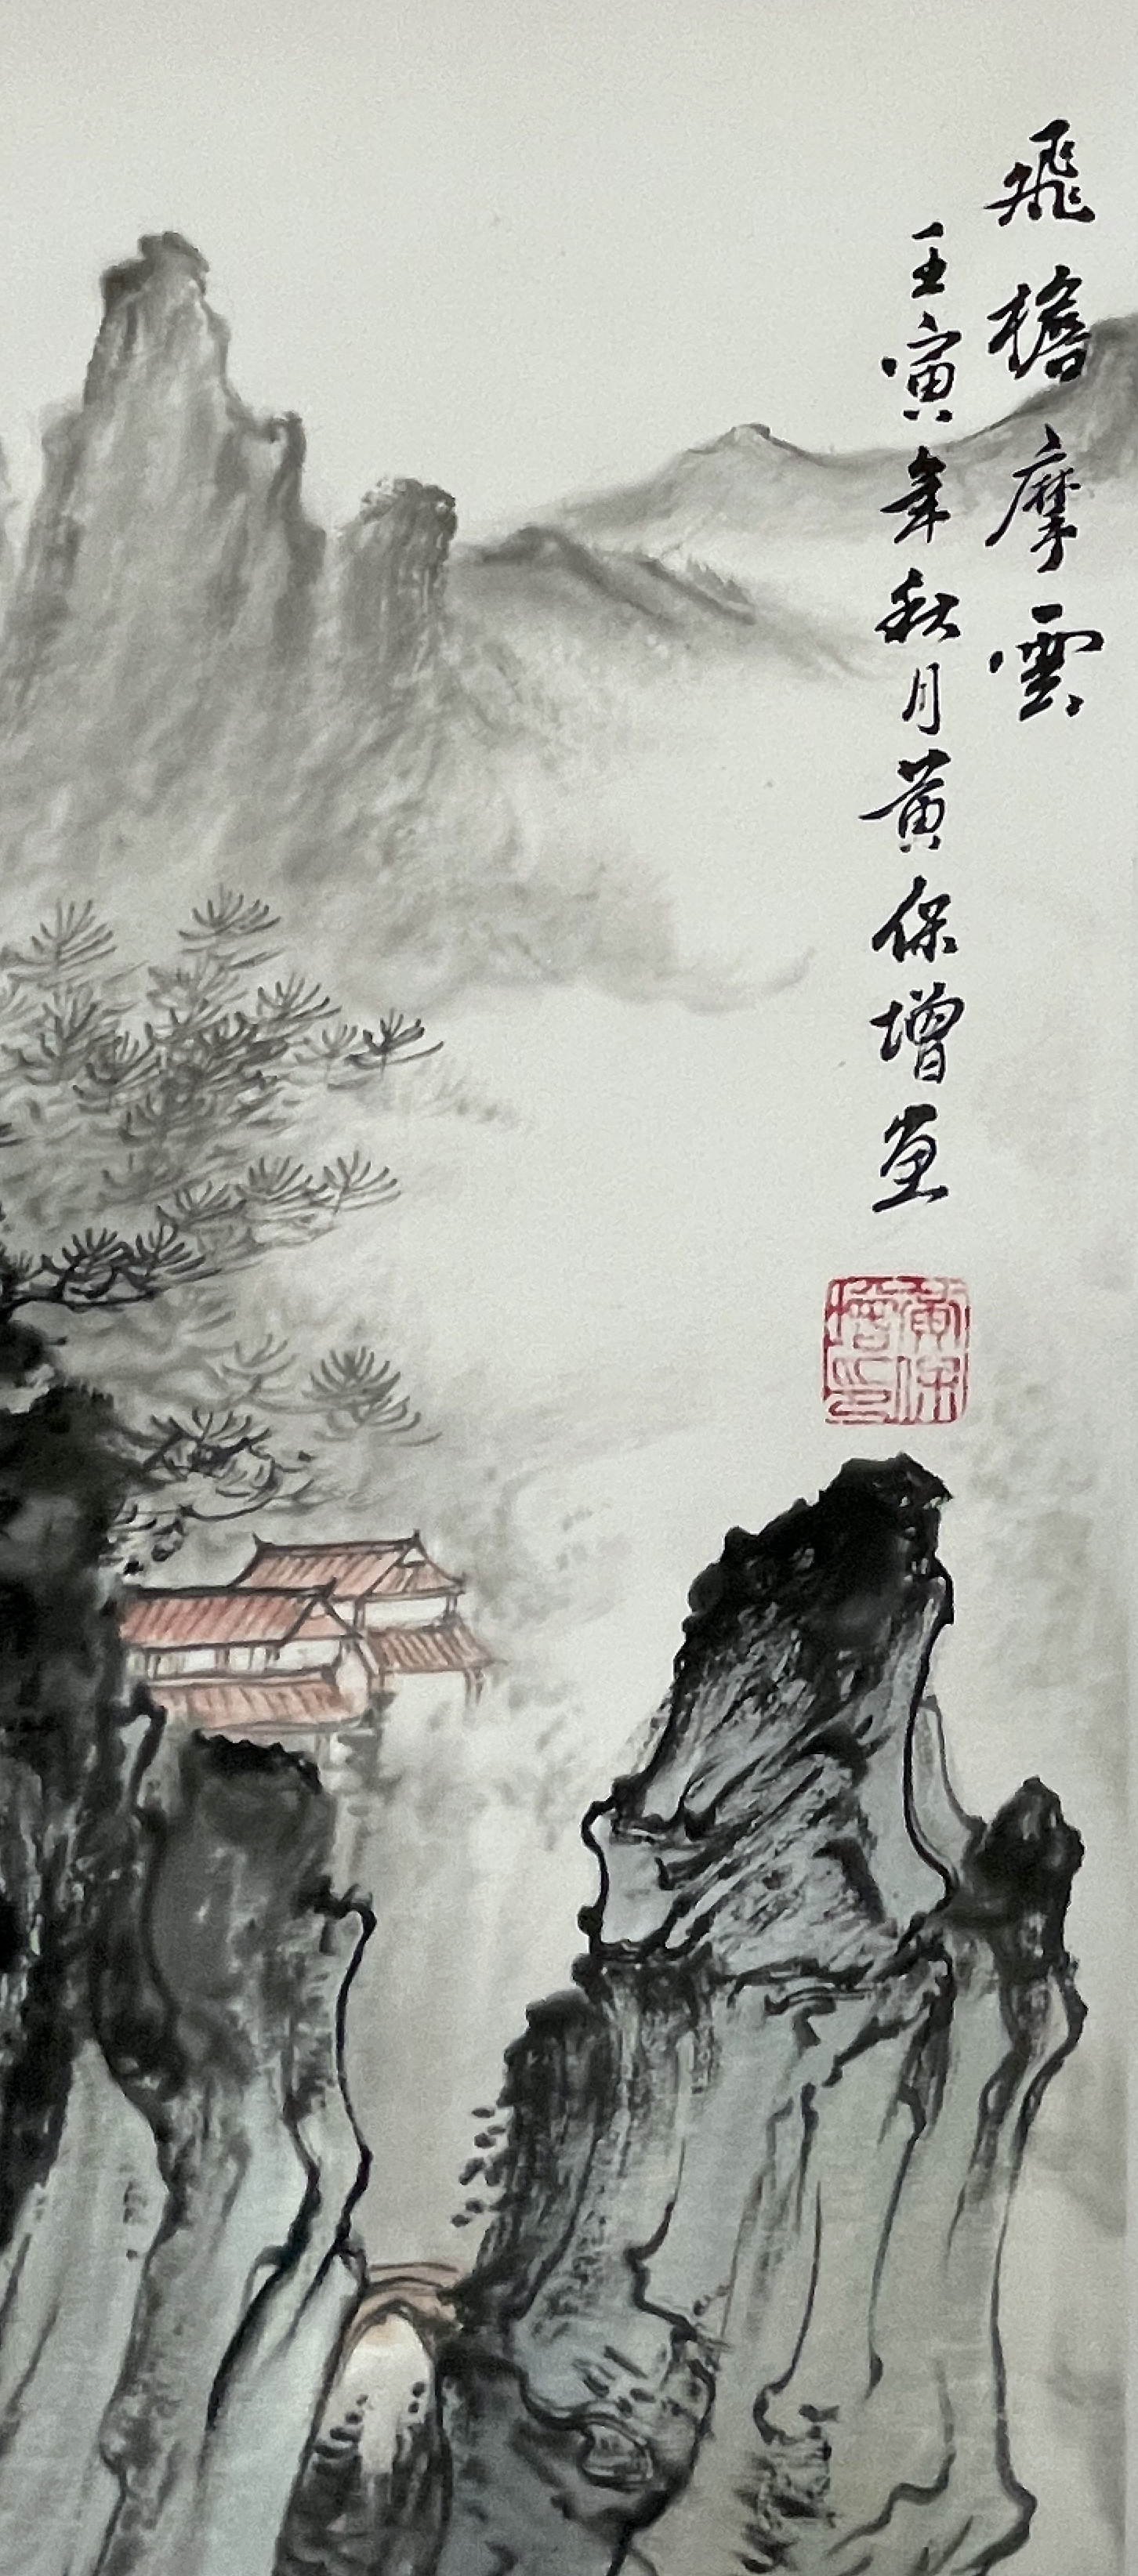 飛檐摩雲
壬寅年秋月黃保增畫
黃保增印